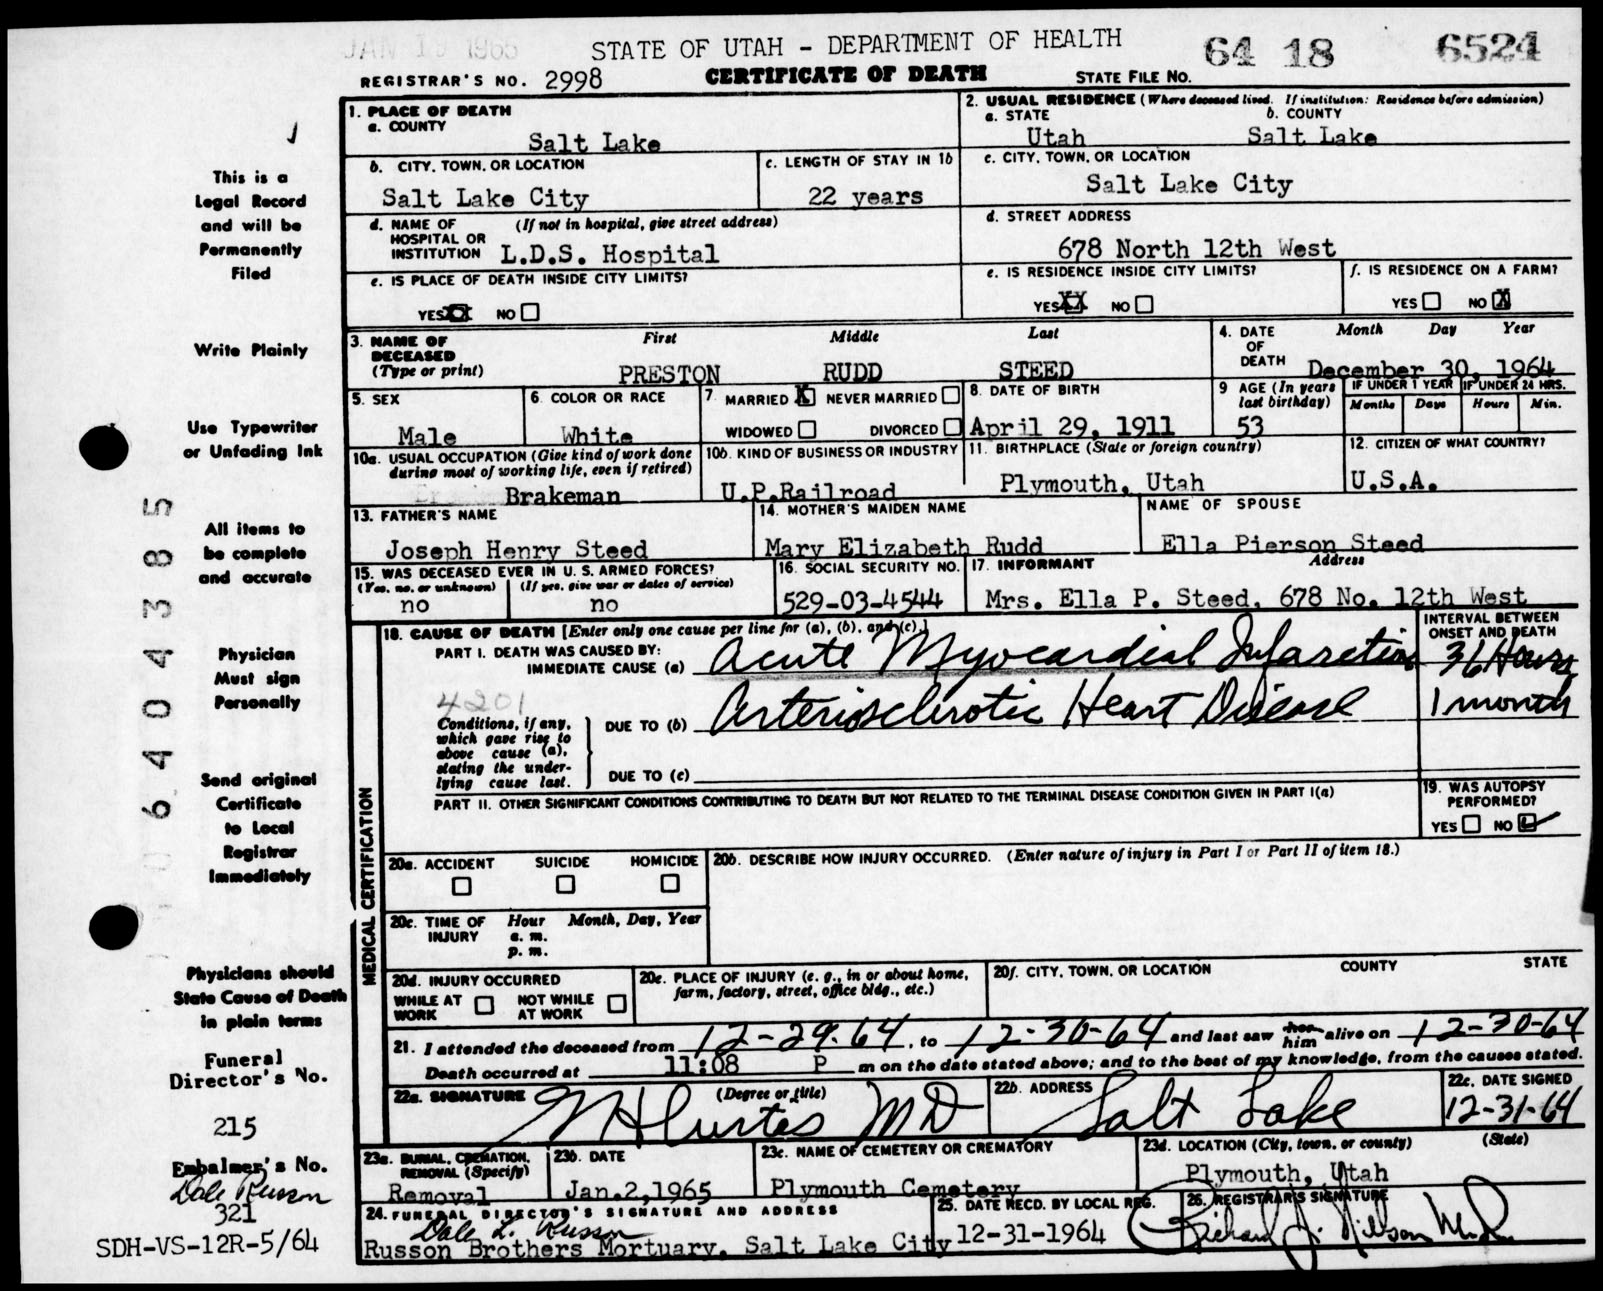 JAN 1 1965
STATE OF UTAH - DEPARTMENT OF HEALTH 64 18 6524
REGISTRAR'S NO. 2998 CERTIFICATE OF DEATH STATE FILE NO.
1. PLACE OF DEATH
a. COUNTY
Salt Lake
2. USUAL RESIDENCE (Where deceased lived. If institution: Residence before admission)
a. STATE b. COUNTY
Utah Salt Lake
b. CITY, TOWN, OR LOCATION
Salt Lake City
c. LENGTH OF STAY IN 1b
22 years
c. CITY, TOWN, OR LOCATION
Salt Lake City
d. NAME OF (If not in hospital, give street address)
HOSPITAL OR
INSTITUTION L.D.S. Hospital
d. STREET ADDRESS
678 North 12th West
e. IS PLACE OF DEATH INSIDE CITY LIMITS?
YES XX NO
e. IS RESIDENCE INSIDE CITY LIMITS?
YES XX NO
f. IS RESIDENCE ON A FARM?
YES NO X
3. NAME OF First Middle Last
DECEASED
(Type or print) PRESTON RUDD STEED
4. DATE Month Day Year
OF
DEATH December 30, 1964
5. SEX
Male
6. COLOR OR RACE
White
7. MARRIED X NEVER MARRIED
WIDOWED DIVORCED
8. DATE OF BIRTH
April 29, 1911
9 AGE (In years
last birthday)
53
IF UNDER 1 YEAR IF UNDER 24 HRS.
Months Days Hours Min.
10a. USUAL OCCUPATION (Give kind of work done
during most of working life, even if retired)
Brakeman
10b. KIND OF BUSINESS OR INDUSTRY
U.P.Railroad
11. BIRTHPLACE (State or foreign country)
Plymouth, Utah
12. CITIZEN OF WHAT COUNTRY?
U.S.A.
13. FATHER'S NAME
Joseph Henry Steed
14. MOTHER'S MAIDEN NAME
Mary Elizabeth Rudd
NAME OF SPOUSE
Ella Pierson Steed
15. WAS DECEASED EVER IN U. S. ARMED FORCES?
(Yes, no, or unknown) (If yes, give war or dates of service)
no no
16. SOCIAL SECURITY NO.
529-03-4544
17. INFORMANT Address
Mrs. Ella P. Steed, 678 No. 12th West
MEDICAL CERTIFICATION
18. CAUSE OF DEATH [Enter only one cause per line for (a), (b), and (c).]
INTERVAL BETWEEN
ONSET AND DEATH
PART I. DEATH WAS CAUSED BY:
IMMEDIATE CAUSE (a) Acute Myocardial Infarction 36 Hours
4201
Conditions, if any,
which gave rise to
above cause (a),
stating the under-
lying cause last.
DUE TO (b) Arteriosclerotic Heart Disease 1 month
DUE TO (c)
PART II. OTHER SIGNIFICANT CONDITIONS CONTRIBUTING TO DEATH BUT NOT RELATED TO THE TERMINAL DISEASE CONDITION GIVEN IN PART I(a)
19. WAS AUTOPSY
PERFORMED?
YES NO
20a. ACCIDENT SUICIDE HOMICIDE
20b. DESCRIBE HOW INJURY OCCURRED. (Enter nature of injury in Part I or Part II of item 18.)
20c. TIME OF Hour Month, Day, Year
INJURY a. m.
p. m.
20d. INJURY OCCURRED
WHILE AT NOT WHILE
WORK AT WORK
20e. PLACE OF INJURY (e. g., in or about home,
farm, factory, street, office bldg., etc.)
20f. CITY, TOWN, OR LOCATION COUNTY STATE
21. I attended the deceased from 12-29-64, to 12-30-64 and last saw her him alive on 12-30-64
Death occurred at 11:08 P m on the date stated above; and to the best of my knowledge, from the causes stated.
22a. SIGNATURE (Degree or title)
Curtes MD
22b. ADDRESS
Salt Lake
22c. DATE SIGNED
12-31-64
23a. BURIAL, CREMATION,
REMOVAL (Specify)
Removal
23b. DATE
Jan.2,1965
23c. NAME OF CEMETERY OR CREMATORY
Plymouth Cemetery
23d. LOCATION (City, town, or county) (State)
Plymouth, Utah
24. FUNERAL DIRECTOR'S SIGNATURE AND ADDRESS
Dale L. Russon
Russon Brothers Mortuary, Salt Lake City
25. DATE RECD. BY LOCAL REG.
12-31-1964
26. REGISTRAR'S SIGNATURE
Richard J. Nilson M.D.
This is a
Legal Record
and will be
Permanently
Filed
Write Plainly
Use Typewriter
or Unfading Ink
All items to
be complete
and accurate
Physician
Must sign
Personally
Send original
Certificate
to Local
Registrar
Immediately
Physicians should
State Cause of Death
in plain terms
Funeral
Director's No.
215
Embalmer's No.
Dale Russon
321
SDH-VS-12R-5/64
06404385